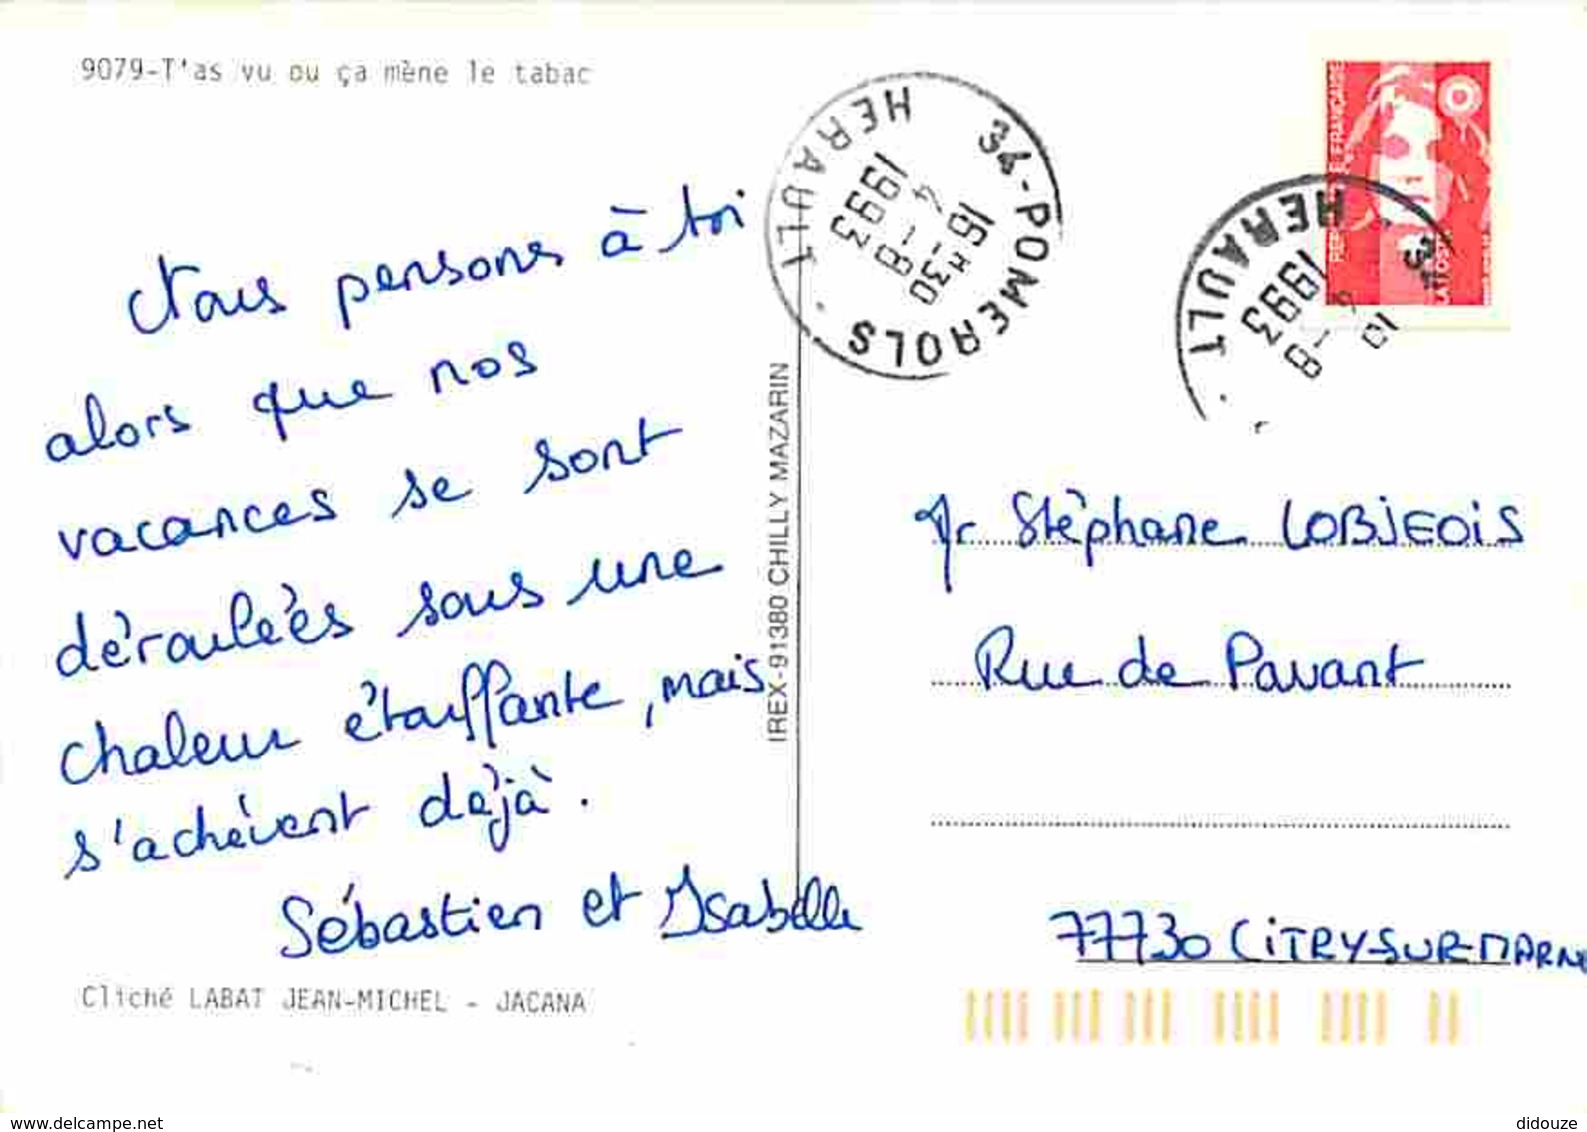 9079-T'as vu ou ça mène le tabac
Nous pensons à toi
alors que nos
vacances se sont
déroulées sous une
chaleur étouffante, mais
s'achévent déjà.
Sébastien et Isabelle
Cliché LABAT JEAN-MICHEL - JACANA
IREX-91380 CHILLY MAZARIN
34-POMEROLS
HERAULT
16H30
4-8
1993
REPUBLIQUE FRANÇAISE
LA POSTE
34
HERAULT
4-8
1993
Mr Stéphane LOBJEOIS
Rue de Pavant
77730 CITRY-SUR-MARNE
www.delcampe.net
didouze